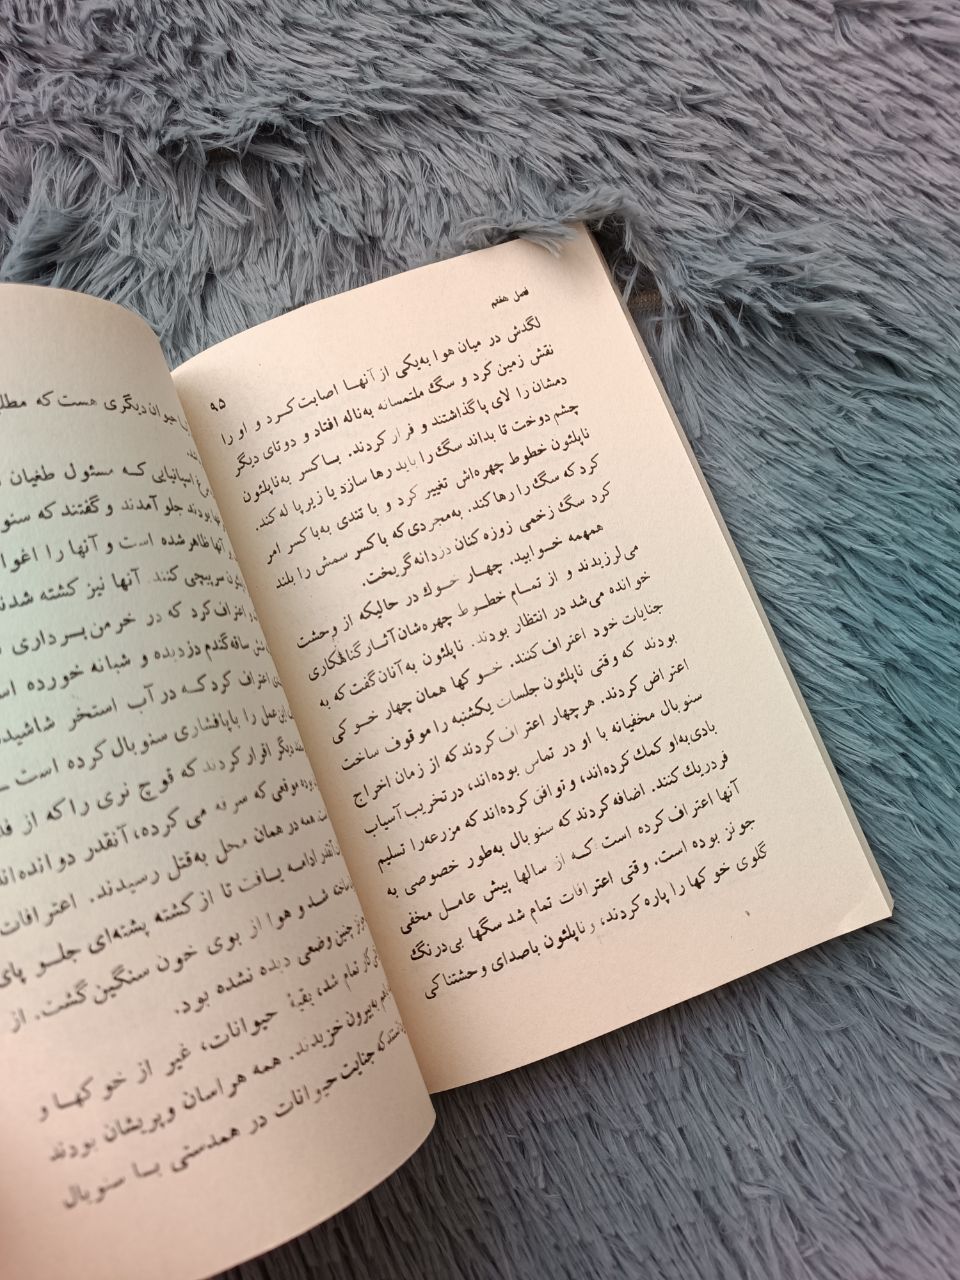 فصل هفتم
۹۵
لگدش در میان هوا به‌یکی از آنهـا اصابت کـرد و او را
نقش زمین کرد و سگ ملتمسانه به‌ناله افتاد و دوتای دیگر
دمشان را لای پا گذاشتند و فرار کردند. باکسر به‌ناپلئون
چشم دوخت تا بداند سگ را باید رها سازد یا زیر پا له کند.
ناپلئون خطوط چهره‌اش تغییر کرد و با تندی به‌باکسر امر
کرد که سگ را رها کند. به‌مجردی که باکسر سمش را بلند
کرد سگ زخمی زوزه کنان دزدانه گریخت.
همهمه خوابید. چهـار خـوك در حالیکه از وحشت
می لرزیدند و از تمـام خطـوط چهره‌شان آثـار گناهکاری
خوانده می‌شد در انتظار بودند. ناپلئون به آنان گفت که به
جنایات خود اعتراف کنند. خـو کها همان چهار خـو کی
بودند که وقتی ناپلئون جلسات یکشنبه را موقوف ساخت
اعتراض کردند. هر چهار اعتراف کردند که از زمان اخراج
سنوبال مخفیانه با او در تماس بوده‌اند، در تخریب آسیاب
بادی به‌او کمك کرده‌اند، و توافق کرده‌اند که مزرعه را تسلیم
فردریك کنند. اضافه کردند که سنوبال به‌طور خصوصی به
آنها اعتراف کرده است کـه از سالها پیش عامـل مخفی
جونز بوده است. وقتی اعترافات تمام شد سگها بی‌درنگ
گلوی خو کها را پاره کردند، و ناپلئون باصدای وحشتناکی
حیوان دیگری هست که
اسپانیایی کـه مسئول طغیان
بودند جلو آمدند و گفتند که
آنها ظاهر شده است و آنها را
سرپیچی کنند. آنها نیز کشته
اعتراف کرد که در خرمن‌بـرداری
ساقه گندم دزدیده و شبانه خورده
اعتراف کرد کـه در آب استخر
این عمل را با پافشاری سنوبال کرده است
دیگر اقرار کردند که قوچ نری را که از
موقعی که سرفه می کرده، آنقدر
همه در همان محل به‌قتل رسیدند. اعترافات
ادامه یـافت تا از کشته پشته‌ای جلـو پای
شد و هوا از بوی خون سنگین گشت. از
چنین وضعی دیده نشده بود.
کار تمام شد، بقیۀ حیوانات، غیر از خو کهـا و
به‌بیرون خزیدند. همه هراسان و پریشان بودند
که جنایت حیوانات در همدستی بـا سنوبال